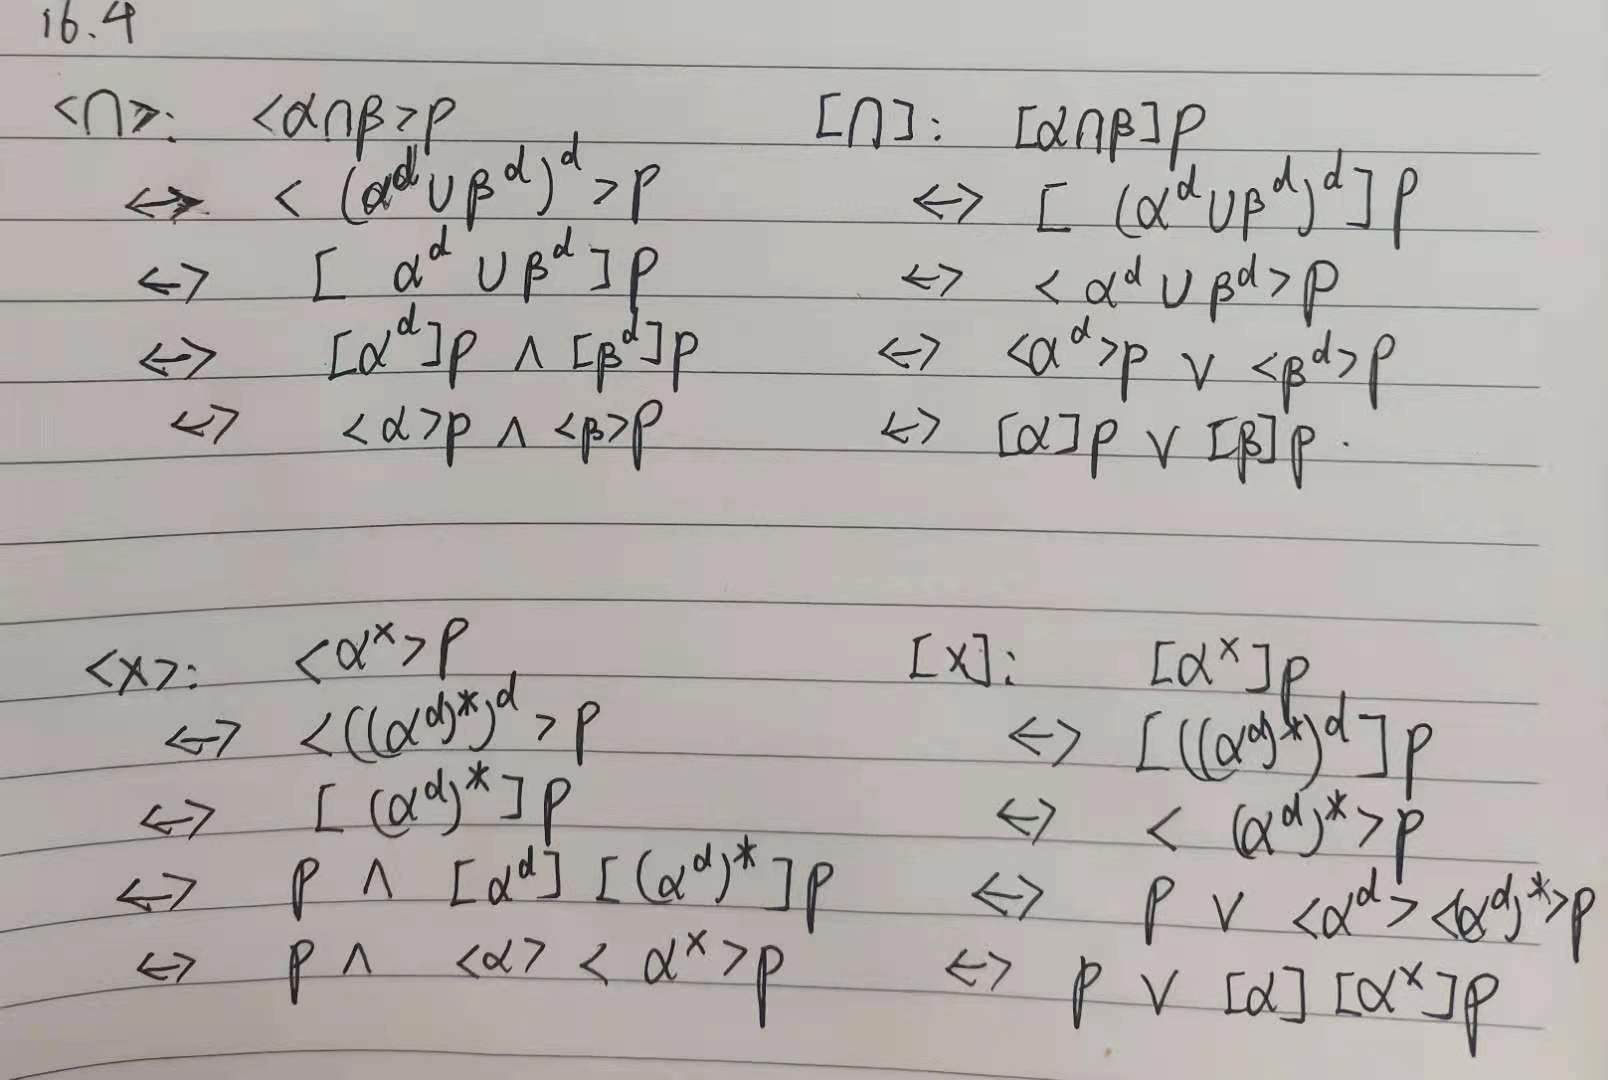 16.4
<∩>: <α∩β>p
↔ <(α^d ∪ β^d)^d>p
↔ [α^d ∪ β^d]p
↔ [α^d]p ∧ [β^d]p
↔ <α>p ∧ <β>p
[∩]: [α∩β]p
↔ [(α^d ∪ β^d)^d]p
↔ <α^d ∪ β^d>p
↔ <α^d>p ∨ <β^d>p
↔ [α]p ∨ [β]p.
<×>: <α^×>p
↔ <((α^d)^*)^d>p
↔ [(α^d)^*]p
↔ p ∧ [α^d][(α^d)^*]p
↔ p ∧ <α><α^×>p
[×]: [α^×]p
↔ [((α^d)^*)^d]p
↔ <(α^d)^*>p
↔ p ∨ <α^d><(α^d)^*>p
↔ p ∨ [α][α^×]p